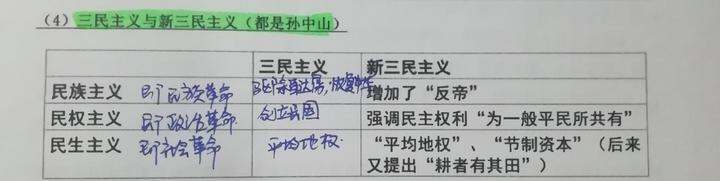 （4）三民主义与新三民主义（都是孙中山）
三民主义 新三民主义
民族主义 即民族革命 驱除鞑虏，恢复中华 增加了“反帝”
民权主义 即政治革命 创立民国 强调民主权利“为一般平民所共有”
民生主义 即社会革命 平均地权 “平均地权”、“节制资本”（后来
又提出“耕者有其田”）